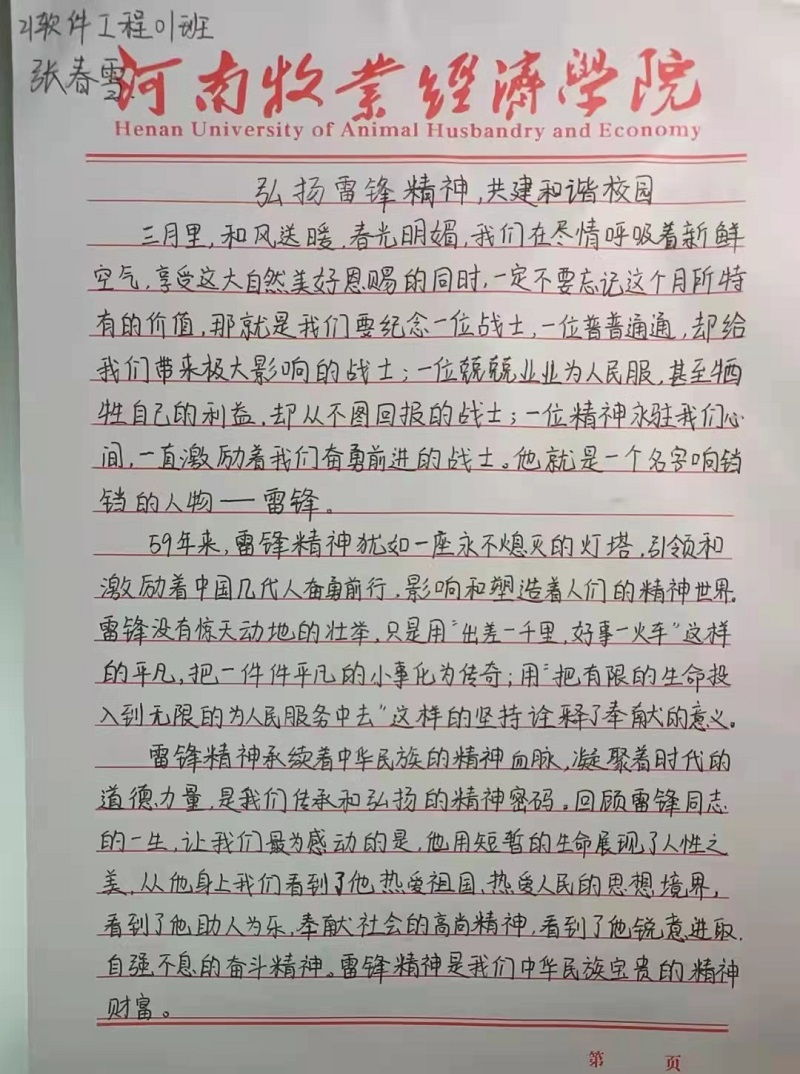 21软件工程01班
张春雪
河南牧業經濟學院
Henan University of Animal Husbandry and Economy
弘扬雷锋精神,共建和谐校园
三月里,和风送暖,春光明媚,我们在尽情呼吸着新鲜
空气,享受这大自然美好恩赐的同时,一定不要忘记这个月所特
有的价值,那就是我们要纪念一位战士,一位普普通通,却给
我们带来极大影响的战士;一位兢兢业业为人民服,甚至牺
牲自己的利益,却从不图回报的战士;一位精神永驻我们心
间,一直激励着我们奋勇前进的战士。他就是一个名字响铛
铛的人物——雷锋。
59年来,雷锋精神犹如一座永不熄灭的灯塔,引领和
激励着中国几代人奋勇前行,影响和塑造着人们的精神世界。
雷锋没有惊天动地的壮举,只是用“出差一千里,好事一火车”这样
的平凡,把一件件平凡的小事化为传奇;用“把有限的生命投
入到无限的为人民服务中去”这样的坚持诠释了奉献的意义。
雷锋精神承续着中华民族的精神血脉,凝聚着时代的
道德力量,是我们传承和弘扬的精神密码。回顾雷锋同志
的一生,让我们最为感动的是,他用短暂的生命展现了人性之
美,从他身上我们看到了他热爱祖国、热爱人民的思想境界,
看到了他助人为乐、奉献社会的高尚精神,看到了他锐意进取、
自强不息的奋斗精神。雷锋精神是我们中华民族宝贵的精神
财富。
第 页